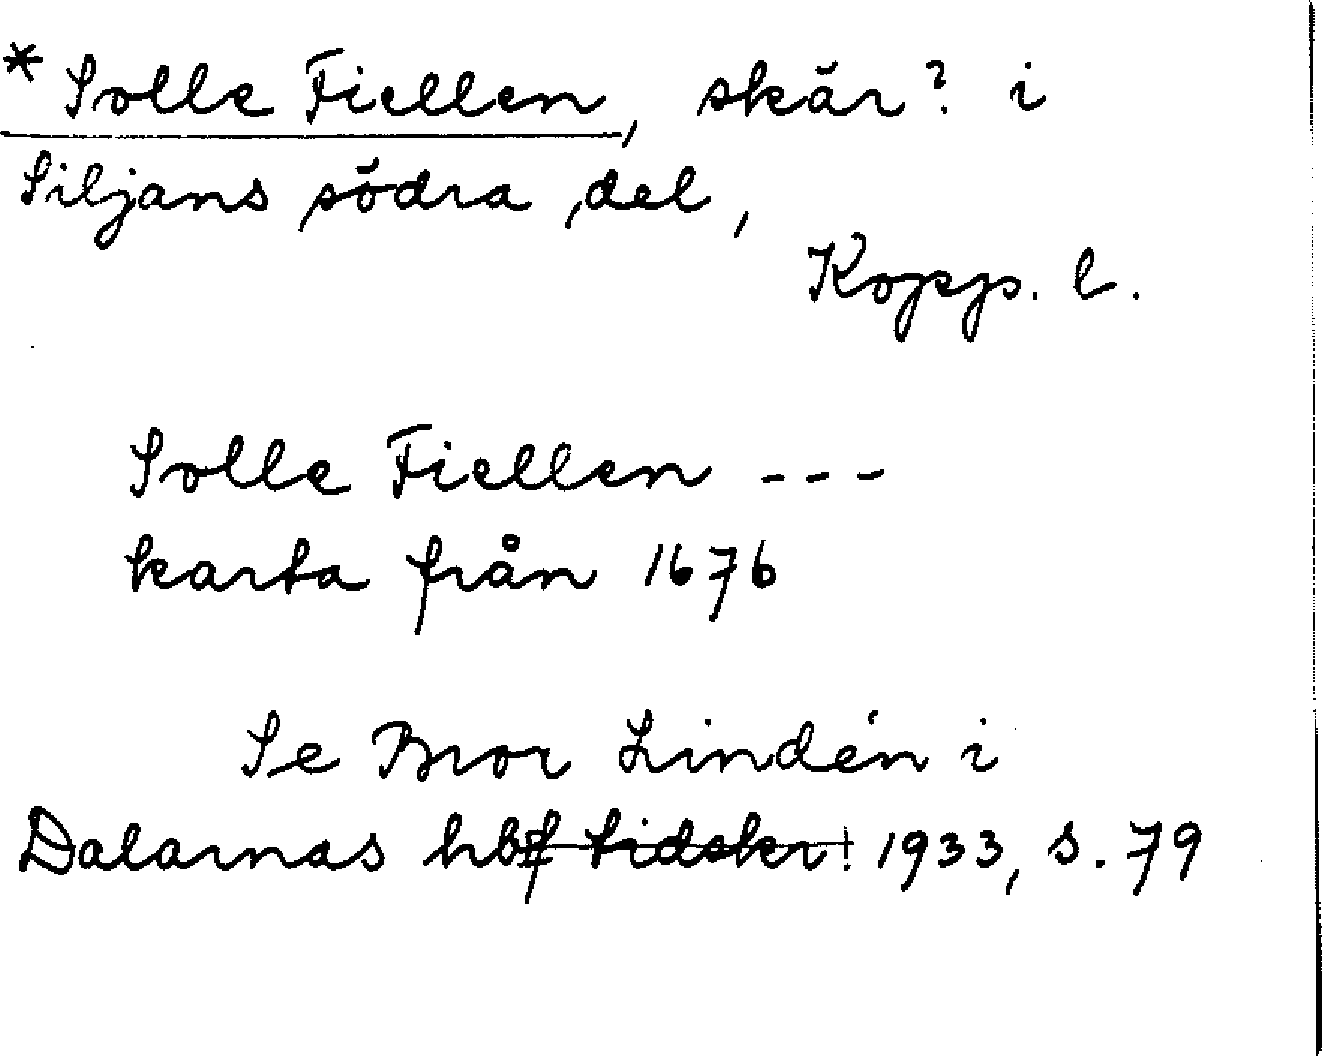 * Solle Fiellen, skär? i
Siljans södra del,
Kopp. l.
Solle Fiellen ---
karta från 1676
Se Bror Lindén i
Dalarnas hbf tidskr. 1933, s. 79